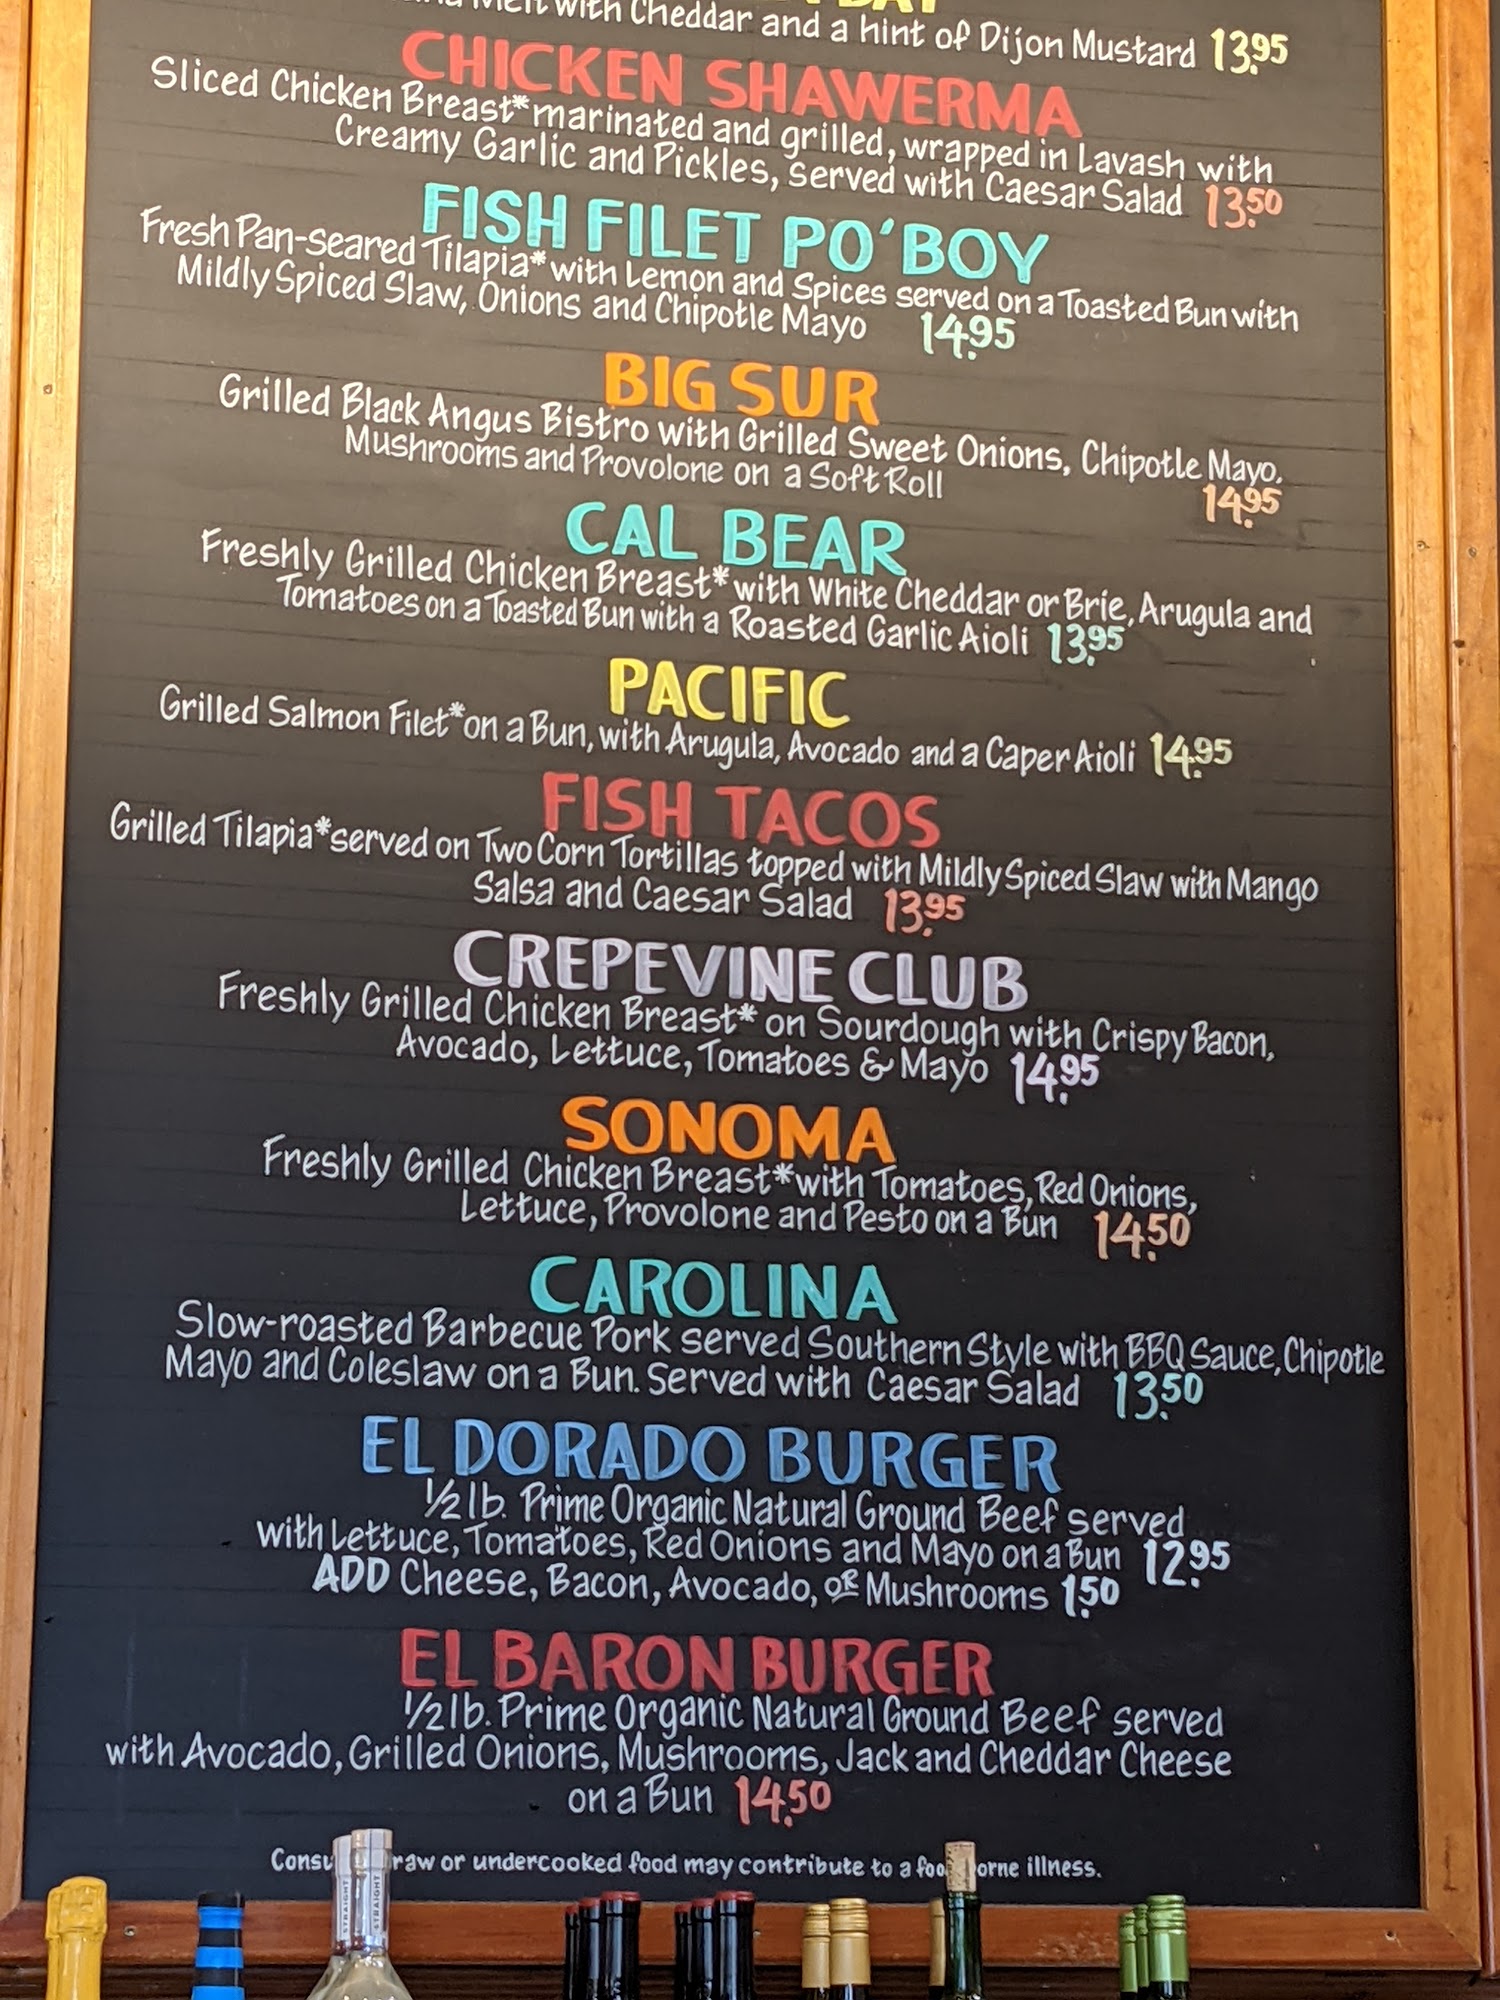 Melt with Cheddar and a hint of Dijon Mustard 13.95
CHICKEN SHAWERMA
Sliced Chicken Breast* marinated and grilled, wrapped in Lavash with
Creamy Garlic and Pickles, served with Caesar Salad 13.50
FISH FILET PO'BOY
Fresh Pan-seared Tilapia* with Lemon and Spices served on a Toasted Bun with
Mildly Spiced Slaw, Onions and Chipotle Mayo 14.95
BIG SUR
Grilled Black Angus Bistro with Grilled Sweet Onions, Chipotle Mayo,
Mushrooms and Provolone on a Soft Roll 14.95
CAL BEAR
Freshly Grilled Chicken Breast* with White Cheddar or Brie, Arugula and
Tomatoes on a Toasted Bun with a Roasted Garlic Aioli 13.95
PACIFIC
Grilled Salmon Filet* on a Bun, with Arugula, Avocado and a Caper Aioli 14.95
FISH TACOS
Grilled Tilapia* served on Two Corn Tortillas topped with Mildly Spiced Slaw with Mango
Salsa and Caesar Salad 13.95
CREPEVINE CLUB
Freshly Grilled Chicken Breast* on Sourdough with Crispy Bacon,
Avocado, Lettuce, Tomatoes & Mayo 14.95
SONOMA
Freshly Grilled Chicken Breast* with Tomatoes, Red Onions,
Lettuce, Provolone and Pesto on a Bun 14.50
CAROLINA
Slow-roasted Barbecue Pork served Southern Style with BBQ Sauce, Chipotle
Mayo and Coleslaw on a Bun. Served with Caesar Salad 13.50
EL DORADO BURGER
1/2 lb. Prime Organic Natural Ground Beef served
with Lettuce, Tomatoes, Red Onions and Mayo on a Bun 12.95
ADD Cheese, Bacon, Avocado, OR Mushrooms 1.50
EL BARON BURGER
1/2 lb. Prime Organic Natural Ground Beef served
with Avocado, Grilled Onions, Mushrooms, Jack and Cheddar Cheese
on a Bun 14.50
raw or undercooked food may contribute to a illness.
STRAIGHT STRAIGHT